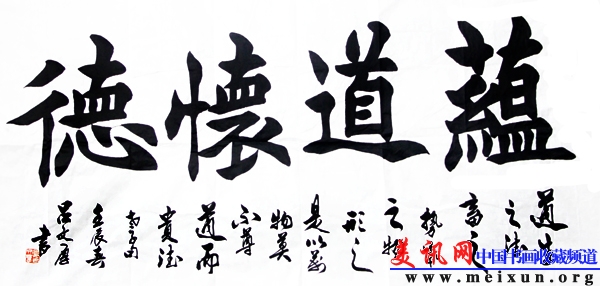 蘊道懷德
道生
之德
畜之
勢成
之物
形之
是以萬
物莫
不尊
道而
貴德
壬辰春
書
美讯网
中国书画收藏频道
www.meixun.org